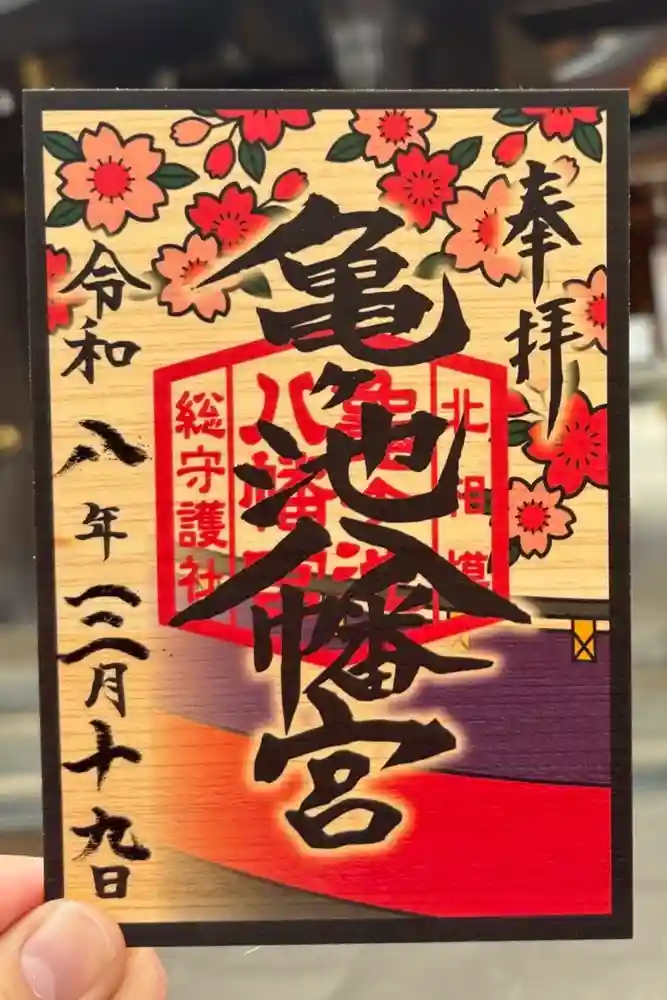 奉拝
亀ヶ池八幡宮
北相模
八幡宮
総守護社
令和八年三月十九日